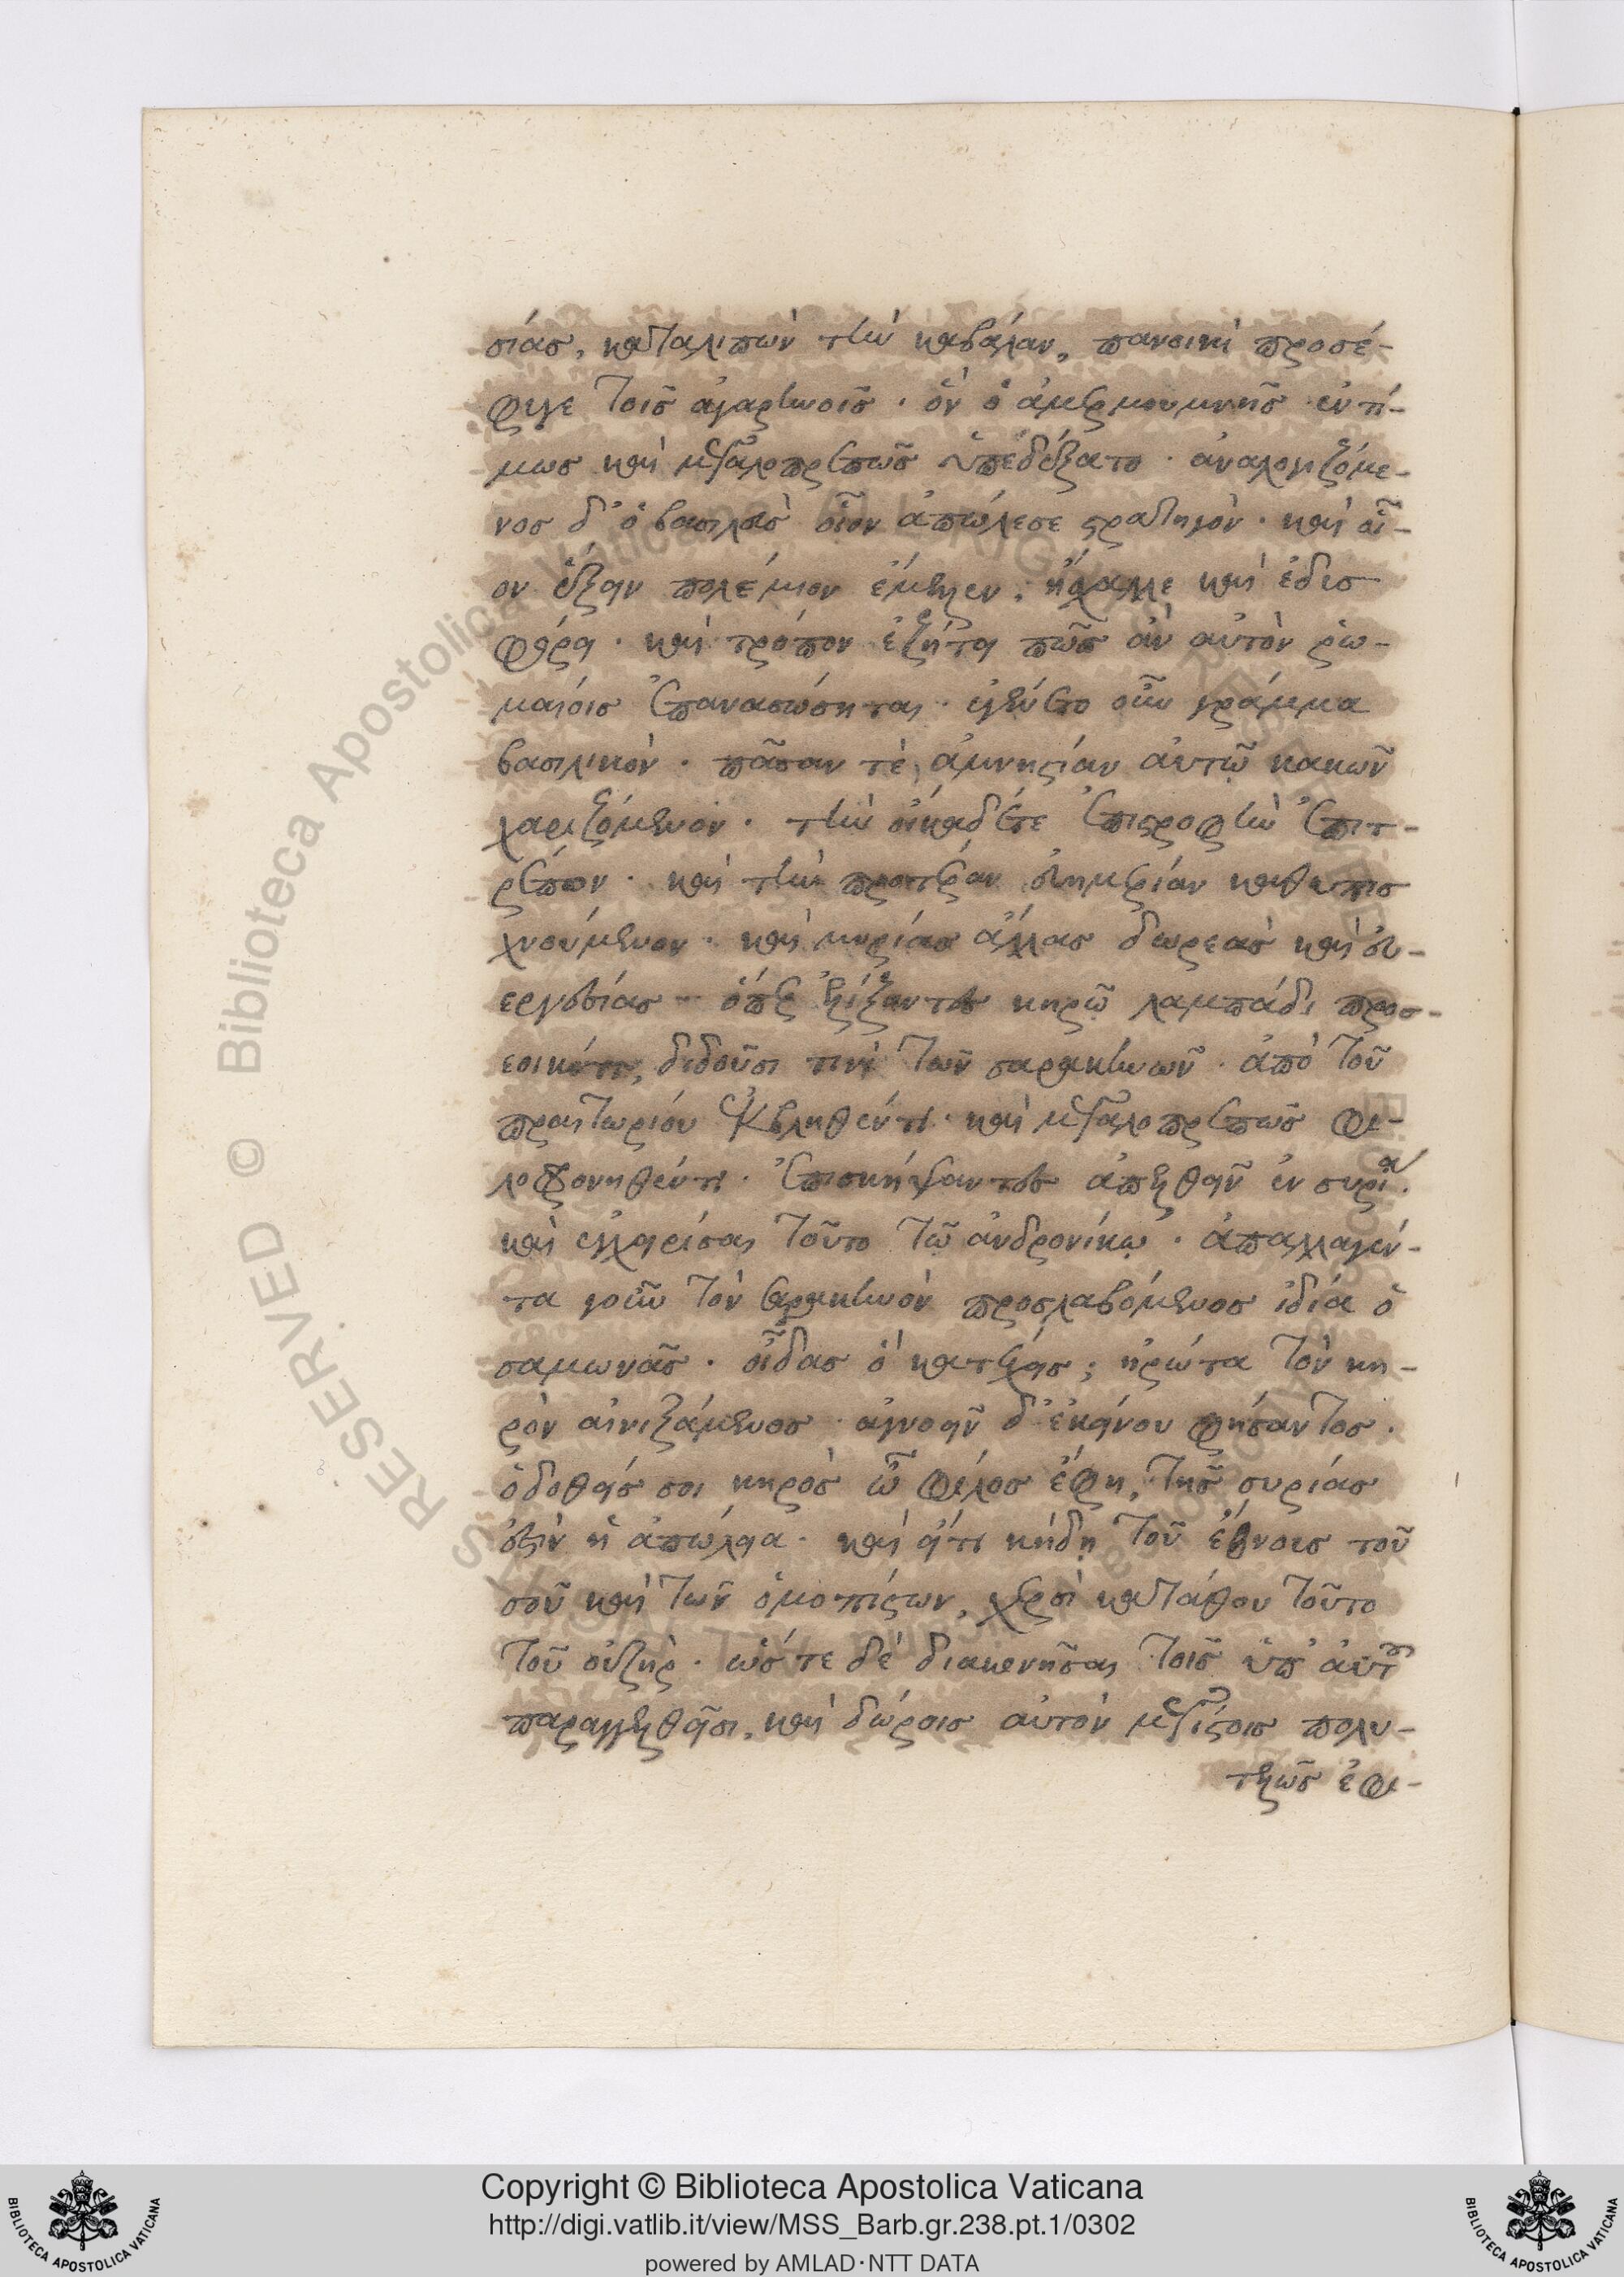 σίας, καταλιπὼν τὴν καβάλαν, πανοικὶ προσέ-
φυγε τοῖς ἀγαρηνοῖς · ὃν ὁ ἀμερμουμνῆς ἐντί-
μως καὶ μεγαλοπρεπῶς ὑπεδέξατο · ἀναλογιζόμε-
νος δ' ὁ βασιλεὺς οἷον ἀπώλεσε στρατηγὸν · καὶ οἷ-
ον ἕξειν πολέμιον ἔμελλεν, ἤσχαλλε καὶ ἐδυσ
φόρει · καὶ τρόπον ἐζήτει πῶς ἂν αὐτὸν ῥω-
μαίοις ἐπανασώσηται · ἐγένετο οὖν γράμμα
βασιλικὸν · πᾶσαν τὲ ἀμνηστίαν αὐτῷ κακῶν
χαριζόμενον · τὴν οἴκαδέτε ἐπιστροφὴν ἐπιτ-
ρέπον · καὶ τὴν προτέραν εὐημερίαν καθυπισ
χνούμενον · καὶ μυρίας ἄλλας δωρεὰς καὶ εὐ-
εργεσίας · ὅπερ ἐλίξαντες κηρῷ λαμπάδι προσ-
εοικότι, διδοῦσι τινὶ τῶν σαρακηνῶν · ἀπὸ τοῦ
πραιτωρίου ἐκβληθέντι · καὶ μεγαλοπρεπῶς φι-
λοφρονηθέντι · ἐπισκήψαντες ἀπελθεῖν ἐν συρίᾳ ·
καὶ ἐγχειρίσαι τοῦτο τῷ ἀνδρονίκῳ · ἀπαλλαγέν-
τα γοῦν τὸν σαρακηνὸν προσλαβόμενος ἰδίᾳ ὁ
σαμωνᾶς · οἶδας ὃ κατέχεις; ἠρώτα τὸν κη-
ρὸν αἰνιξάμενος · ἀγνοεῖν δ' ἐκείνου φήσαντος ·
ὁ δοθείς σοι κηρὸς ὦ φίλος ἔφη, τῆς συρίας
ἐστὶν ἡ ἀπώλεια · καὶ εἴτι κήδῃ τοῦ ἔθνους τοῦ
σοῦ καὶ τῶν ὁμοπίστων, χερσὶ κατάθου τοῦτο
τοῦ οὐζὴρ · ὥς τε δὲ διακονῆσαι τοῖς ὑπ' αὐτοῦ
παραγγελθεῖσι, καὶ δώροις αὐτὸν μεγίστοις πολυ-
τελῶς ἐφι-